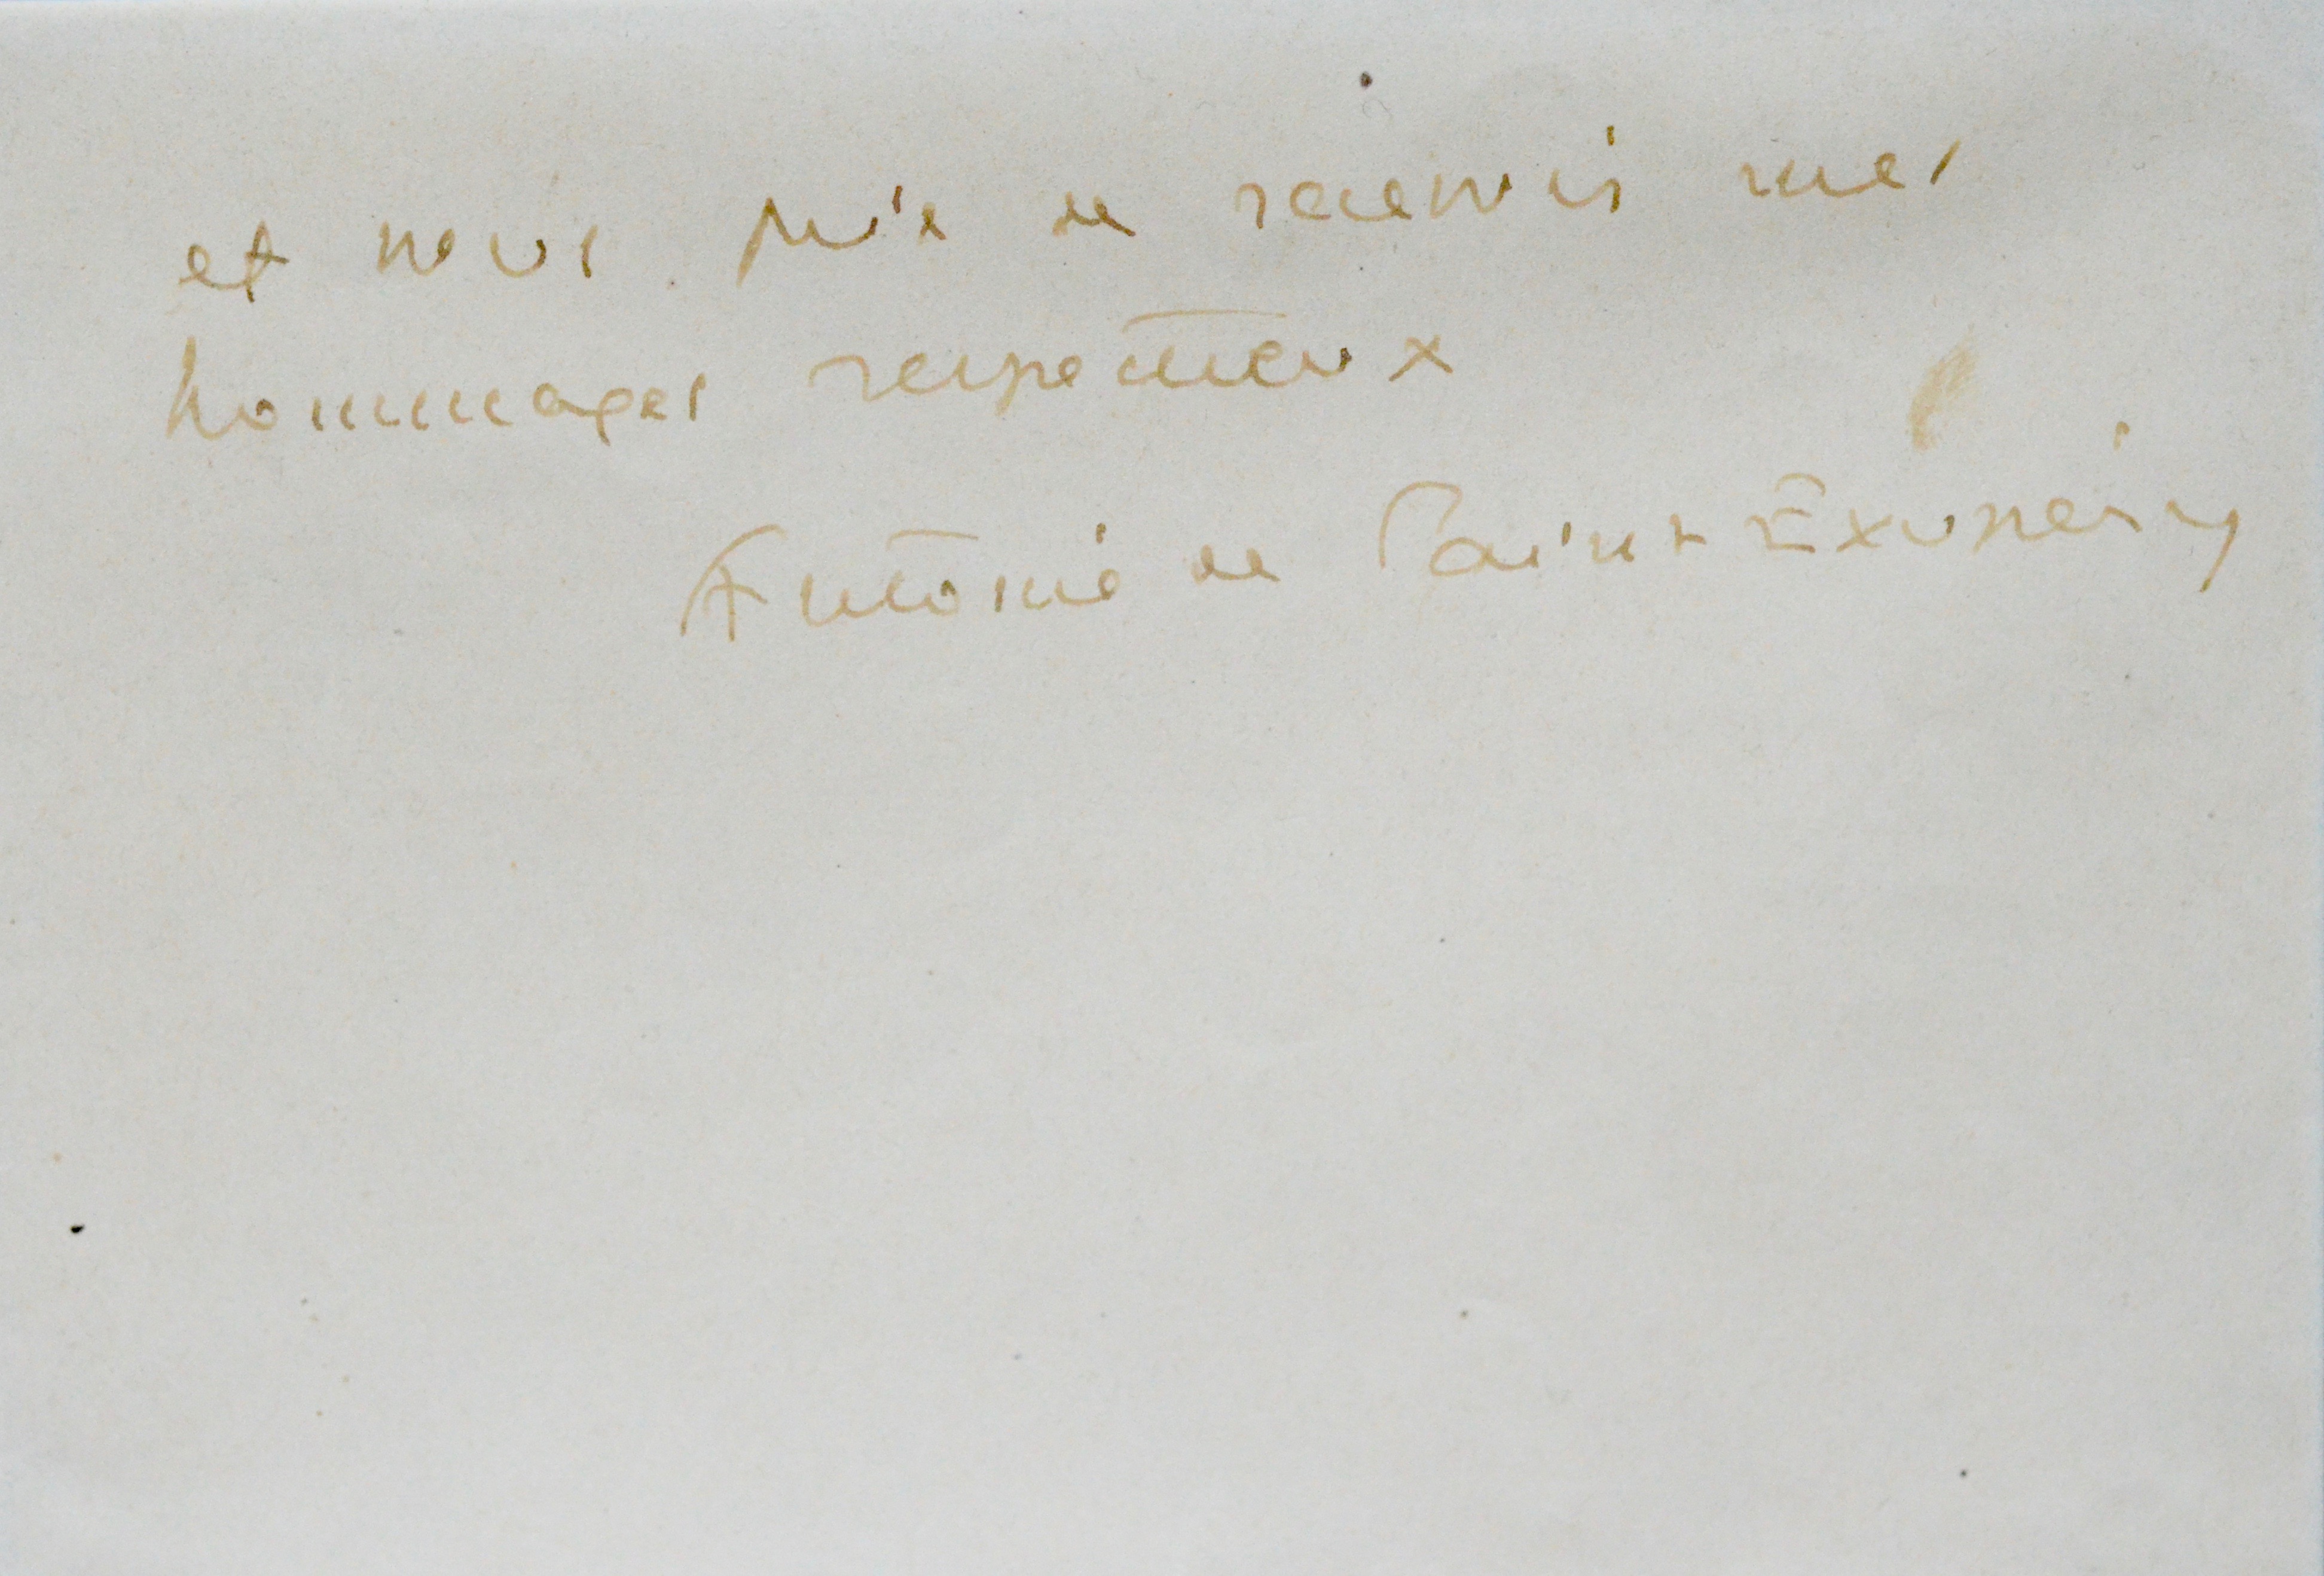 et vous prie de recevoir mes
hommages respectueux
Antoine de Saint Exupéry